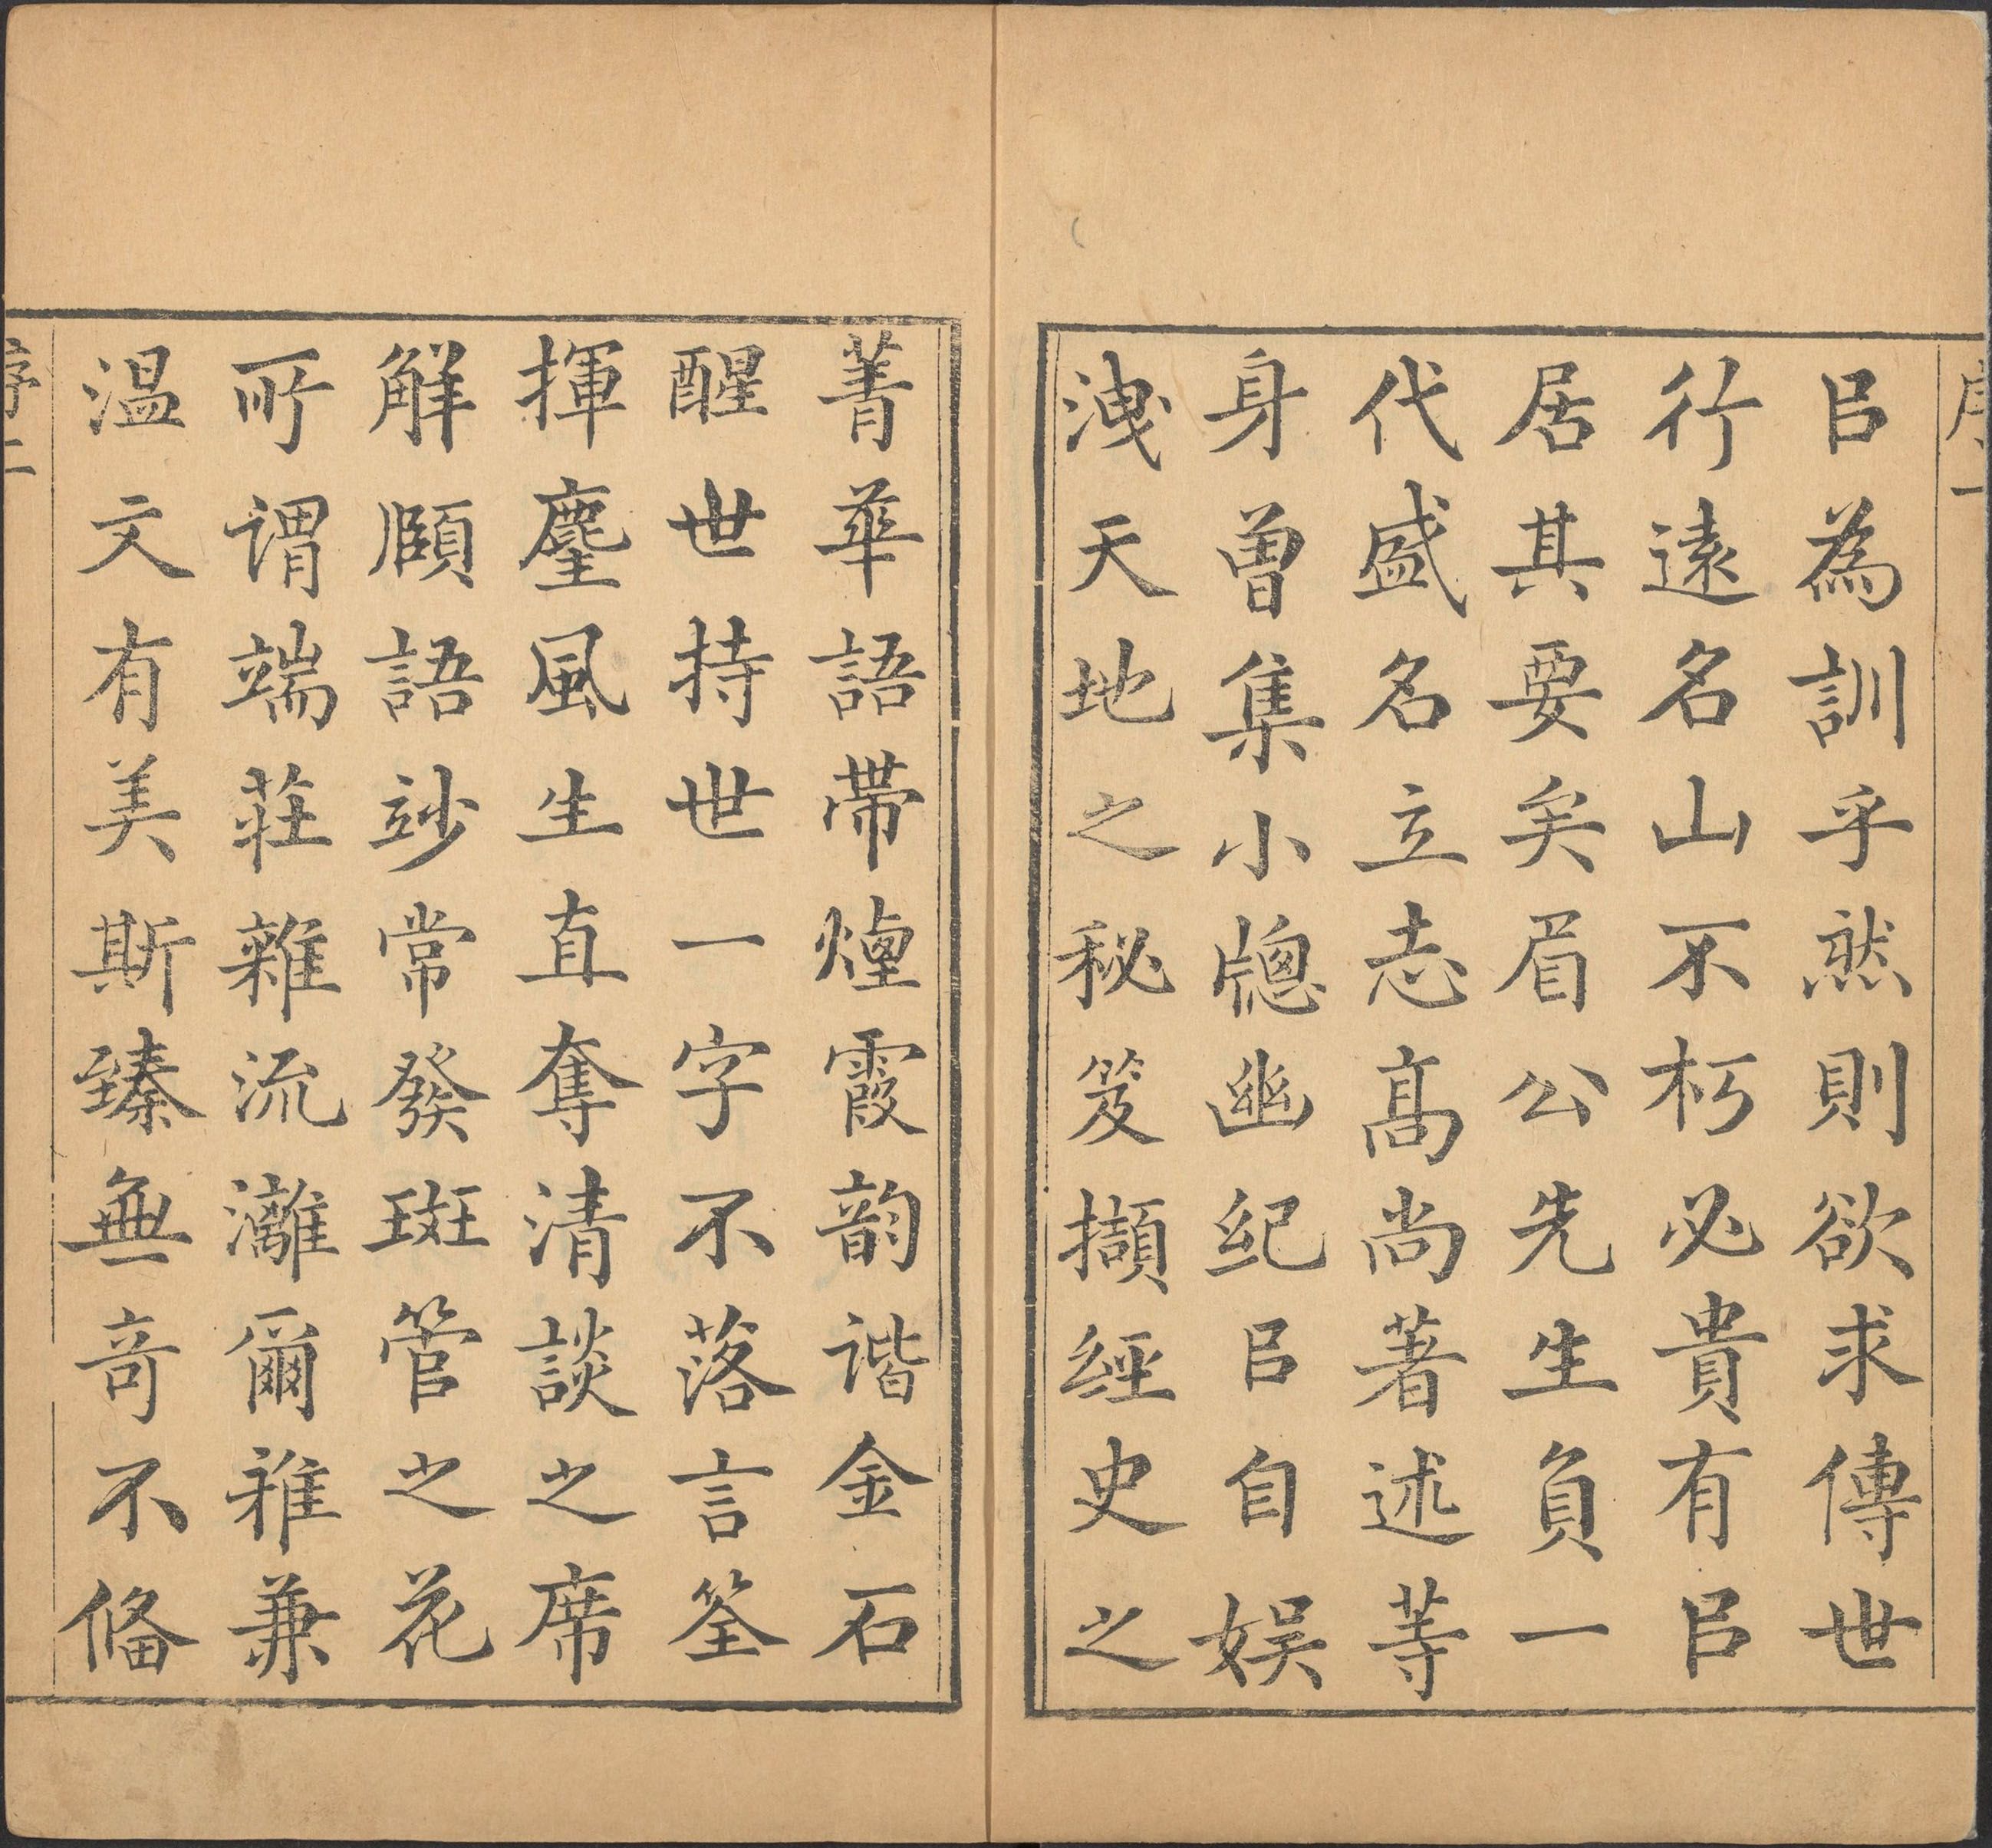 㠯為訓乎然則欲求傳世
行遠名山不朽必貴有㠯
居其要矣眉公先生負一
代盛名立志高尚著述等
身曾集小牕幽紀㠯自娱
洩天地之秘笈擷經史之
菁華語帶煙霞韵谐金石
醒世持世一字不落言筌
揮麈風生直奪清談之席
解頤語玅常發斑管之花
所謂端莊雜流灕爾雅兼
温文有美斯臻無奇不俻
序二